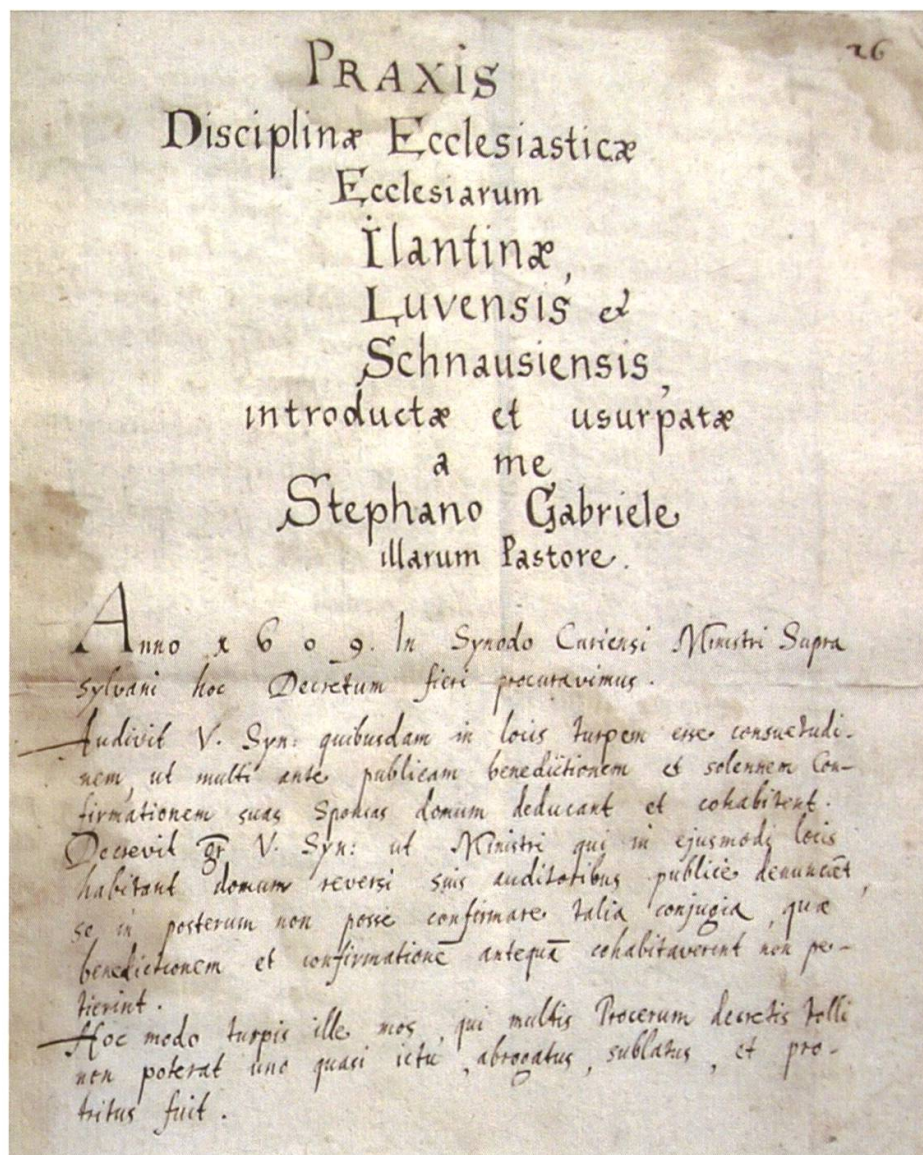 26
PRAXIS
Disciplinæ Ecclesiasticæ
Ecclesiarum
Ilantinæ,
Luvensis et
Schnausiensis,
introductæ et usurpatæ
a me
Stephano Gabriele
illarum Pastore.
Anno 1609. In Synodo Curiensi Ministri Supra
sylvani hoc Decretum fieri procuravimus.
Audivit V. Syn: quibusdam in locis turpem esse consuetudi-
nem, ut multi ante publicam benedictionem et solennem Con-
firmationem suas Sponsas domum deducant et cohabitent.
Decrevit V. Syn: ut Ministri qui in ejusmodi locis
habitant domum reversi suis auditoribus publice denunciēt,
se in posterum non posse confirmare talia conjugia, quæ
benedictionem et confirmationē antequā cohabitaverint non pe-
tierint.
Hoc modo turpis ille mos, qui multis Procerum decretis tolli
non poterat uno quasi ictu, abrogatus, sublatus, et pro-
tritus fuit.